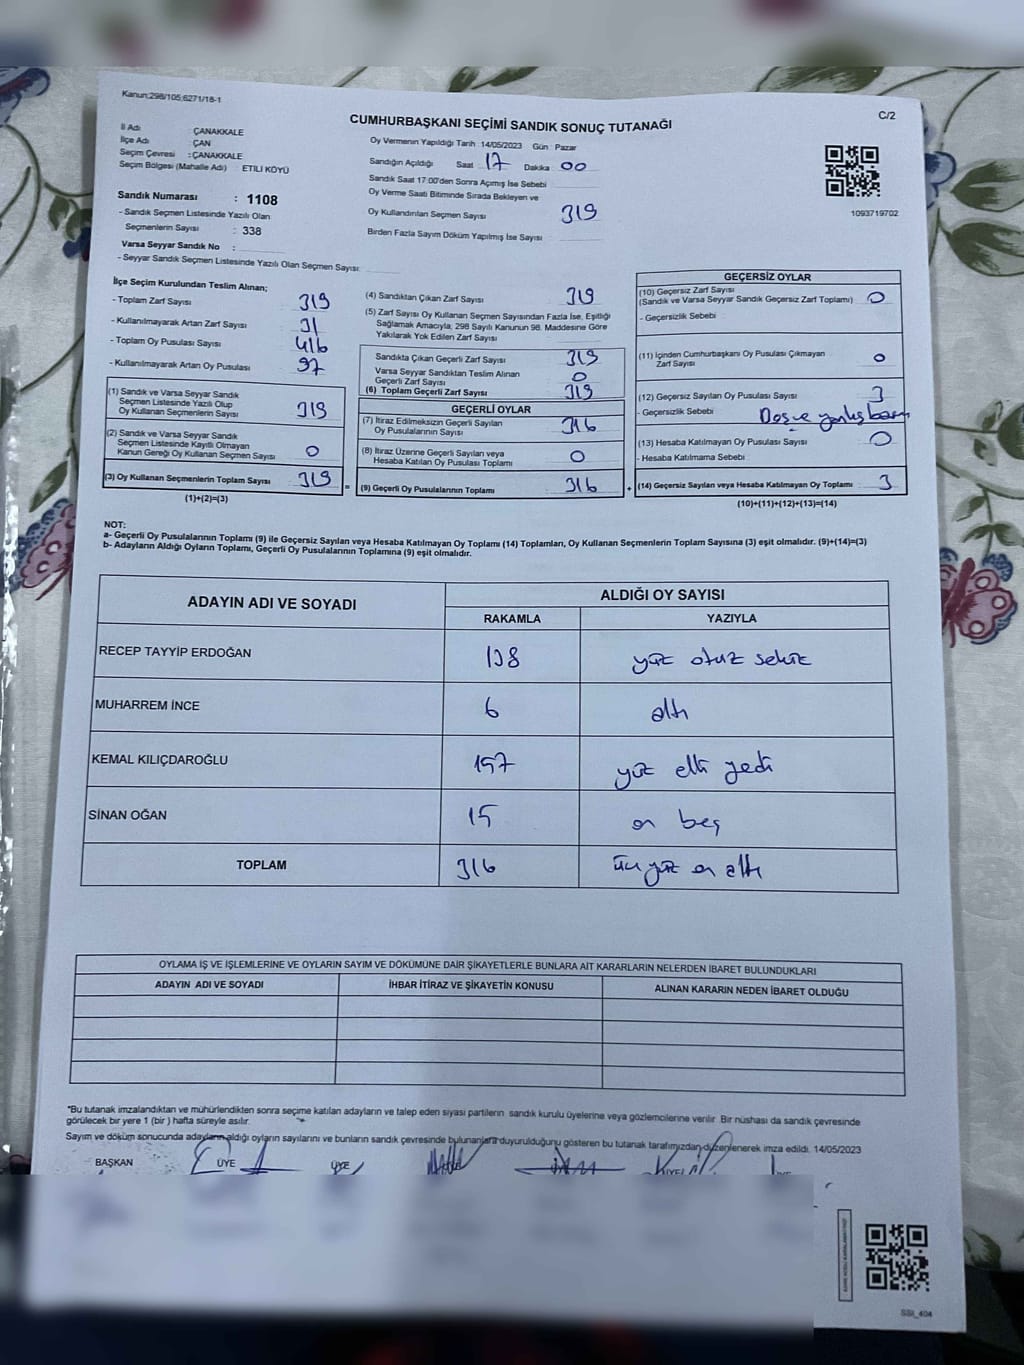 Kanun:298/105;6271/18-1
C/2
CUMHURBAŞKANI SEÇİMİ SANDIK SONUÇ TUTANAĞI
İl Adı : ÇANAKKALE
İlçe Adı : ÇAN
Seçim Çevresi : ÇANAKKALE
Seçim Bölgesi (Mahalle Adı) ETİLİ KÖYÜ
Sandık Numarası : 1108
- Sandık Seçmen Listesinde Yazılı Olan
Seçmenlerin Sayısı : 338
Varsa Seyyar Sandık No :
- Seyyar Sandık Seçmen Listesinde Yazılı Olan Seçmen Sayısı:
Oy Vermenin Yapıldığı Tarih 14/05/2023 Gün Pazar
Sandığın Açıldığı Saat 17 Dakika 00
Sandık Saat 17:00'den Sonra Açımış İse Sebebi
Oy Verme Saati Bitiminde Sırada Bekleyen ve
Oy Kullandırılan Seçmen Sayısı 319
Birden Fazla Sayım Döküm Yapılmış İse Sayısı
1093719702
İlçe Seçim Kurulundan Teslim Alınan;
- Toplam Zarf Sayısı 319
- Kullanılmayarak Artan Zarf Sayısı 31
- Toplam Oy Pusulası Sayısı 416
- Kullanılmayarak Artan Oy Pusulası 97
(1) Sandık ve Varsa Seyyar Sandık
Seçmen Listesinde Yazılı Olup
Oy Kullanan Seçmenlerin Sayısı 319
(2) Sandık ve Varsa Seyyar Sandık
Seçmen Listesinde Kayıtlı Olmayan
Kanun Gereği Oy Kullanan Seçmen Sayısı 0
(3) Oy Kullanan Seçmenlerin Toplam Sayısı 319
(1)+(2)=(3)
(4) Sandıktan Çıkan Zarf Sayısı 319
(5) Zarf Sayısı Oy Kullanan Seçmen Sayısından Fazla İse, Eşitliği
Sağlamak Amacıyla, 298 Sayılı Kanunun 98. Maddesine Göre
Yakılarak Yok Edilen Zarf Sayısı
Sandıkta Çıkan Geçerli Zarf Sayısı 319
Varsa Seyyar Sandıktan Teslim Alınan
Geçerli Zarf Sayısı 0
(6) Toplam Geçerli Zarf Sayısı 319
GEÇERLİ OYLAR
(7) İtiraz Edilmeksizin Geçerli Sayılan
Oy Pusulalarının Sayısı 316
(8) İtiraz Üzerine Geçerli Sayılan veya
Hesaba Katılan Oy Pusulası Toplamı 0
=
(9) Geçerli Oy Pusulalarının Toplamı 316
+
GEÇERSİZ OYLAR
(10) Geçersiz Zarf Sayısı
(Sandık ve Varsa Seyyar Sandık Geçersiz Zarf Toplamı) 0
- Geçersizlik Sebebi
(11) İçinden Cumhurbaşkanı Oy Pusulası Çıkmayan
Zarf Sayısı 0
(12) Geçersiz Sayılan Oy Pusulası Sayısı 3
- Geçersizlik Sebebi
(13) Hesaba Katılmayan Oy Pusulası Sayısı 0
- Hesaba Katılmama Sebebi
(14) Geçersiz Sayılan veya Hesaba Katılmayan Oy Toplamı 3
(10)+(11)+(12)+(13)=(14)
NOT:
a- Geçerli Oy Pusulalarının Toplamı (9) ile Geçersiz Sayılan veya Hesaba Katılmayan Oy Toplamı (14) Toplamları, Oy Kullanan Seçmenlerin Toplam Sayısına (3) eşit olmalıdır. (9)+(14)=(3)
b- Adayların Aldığı Oyların Toplamı, Geçerli Oy Pusulalarının Toplamına (9) eşit olmalıdır.
ADAYIN ADI VE SOYADI
ALDIĞI OY SAYISI
RAKAMLA YAZIYLA
RECEP TAYYİP ERDOĞAN 138 yüz otuz sekiz
MUHARREM İNCE 6 altı
KEMAL KILIÇDAROĞLU 157 yüz elli yedi
SİNAN OĞAN 15 on beş
TOPLAM 316 üç yüz on altı
OYLAMA İŞ VE İŞLEMLERİNE VE OYLARIN SAYIM VE DÖKÜMÜNE DAİR ŞİKAYETLERLE BUNLARA AİT KARARLARIN NELERDEN İBARET BULUNDUKLARI
ADAYIN ADI VE SOYADI İHBAR İTİRAZ VE ŞİKAYETİN KONUSU ALINAN KARARIN NEDEN İBARET OLDUĞU
*Bu tutanak imzalandıktan ve mühürlendikten sonra seçime katılan adayların ve talep eden siyasi partilerin sandık kurulu üyelerine veya gözlemcilerine verilir. Bir nüshası da sandık çevresinde
görülecek bir yere 1 (bir) hafta süreyle asılır.
Sayım ve döküm sonucunda adayların aldığı oyların sayılarını ve bunların sandık çevresinde bulunanlara duyurulduğunu gösteren bu tutanak tarafımızdan düzenlenerek imza edildi. 14/05/2023
BAŞKAN ÜYE ÜYE
SSI_404